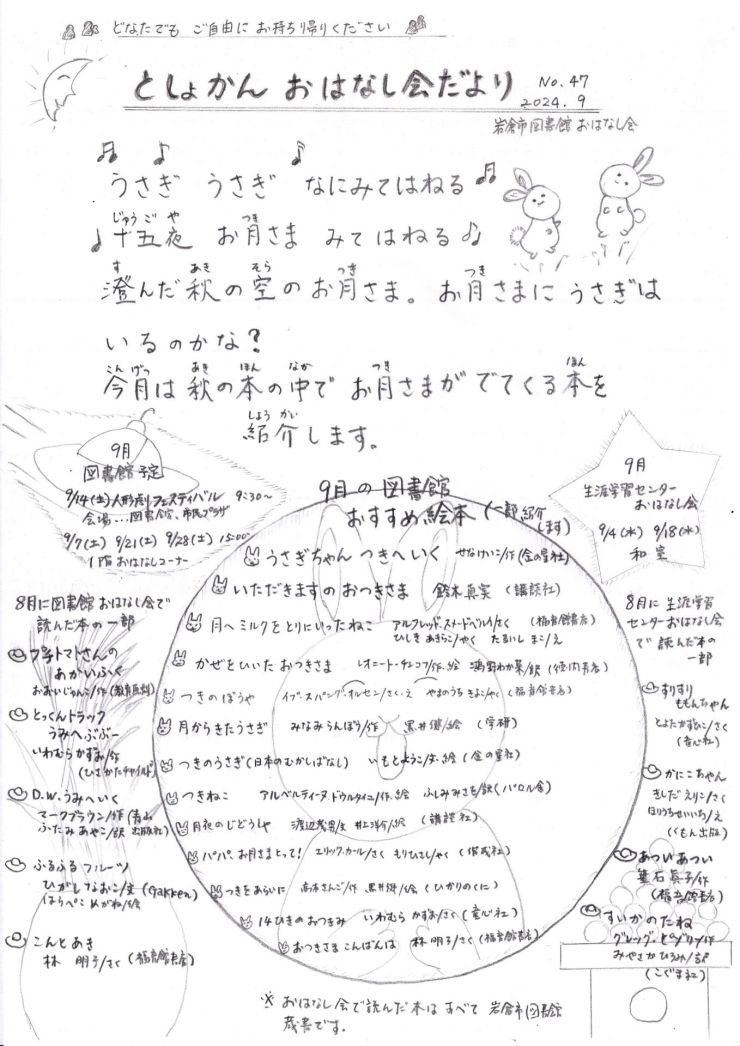 どなたでも ご自由に お持ち帰りください
としょかん おはなし会だより
No.47
2024.9
岩倉市図書館 おはなし会
うさぎ うさぎ なにみてはねる
十五夜 お月さま みてはねる
じゅうごや つき
澄んだ秋の空のお月さま。お月さまにうさぎは
す あき そら つき つき
いるのかな?
今月は秋の本の中で お月さまが でてくる本を
こんげつ あき ほん なか つき ほん
紹介します。
しょうかい
9月
図書館予定
9/14(土)人形劇フェスティバル 9:30~
会場...図書館、市民プラザ
9/7(土) 9/21(土) 9/28(土) 15:00~
1階 おはなしコーナー
9月
生涯学習センター
おはなし会
9/4(水) 9/18(水)
和室
9月の図書館
おすすめ絵本(一部紹介
します)
うさぎちゃん つきへいく せなけいこ/作(金の星社)
いただきますの おつきさま 鈴木真実(講談社)
月へミルクをとりにいったねこ アルフレッド.スメードベルイ/さく(福音館書店)
ひしき あきらこ/やく たるいし まこ/え
かぜをひいたおつきさま レオニート・チシコフ/作.絵 鴻野わか菜/訳(徳間書店)
つきのぼうや イブ・スパング・オルセン/さく・え やまのうち きよこ/やく(福音館書店)
月からきたうさぎ みなみらんぼう/作 黒井健/絵 (学研)
つきのうさぎ(日本のむかしばなし) いもとようこ/文・絵(金の星社)
つきねこ アルベルティーヌ ドゥルタイユ/作.絵 ふしみみさを/訳(パロル舎)
月夜のじどうしゃ 渡辺茂男/文 井上洋介/絵 (講談社)
パパ、お月さまとって! エリック.カール/さく もりひさし/やく (偕成社)
つきをあらいに 高木さんご/作 黒井健/絵(ひかりのくに)
14ひきのおつきみ いわむら かずお/さく(童心社)
おつきさまこんばんは 林 明子/さく(福音館書店)
8月に図書館 おはなし会で
読んだ本の一部
トマトさんの
あかいふく
おおいじゅんこ/作(教育画劇)
とっくんトラック
うみへぶぶー
いわむら かずお/作
(ひさかたチャイルド)
D.W.うみへいく
マークブラウン/作(青山
ふたみ あやこ/訳 出版社)
ふるふる フルーツ
ひがしなおこ/文(Gakken)
はらぺこ めがね/絵
こんとあき
林 明子/さく(福音館書店)
8月に 生涯学習
センターおはなし会
で 読んだ本の
一部
すりすり
ももんちゃん
とよたかずひこ/さく
(童心社)
かにこちゃん
きしだ えりこ/さく
ほりうちせいいち/え
(くもん出版)
あついあつい
垂石眞子/作
(福音館書店)
すいかのたね
グレッグ・ピゾーリ/作
みやさか ひろみ/訳
(こぐま社)
※ おはなし会で読んだ本は すべて 岩倉市図書館
蔵書です。